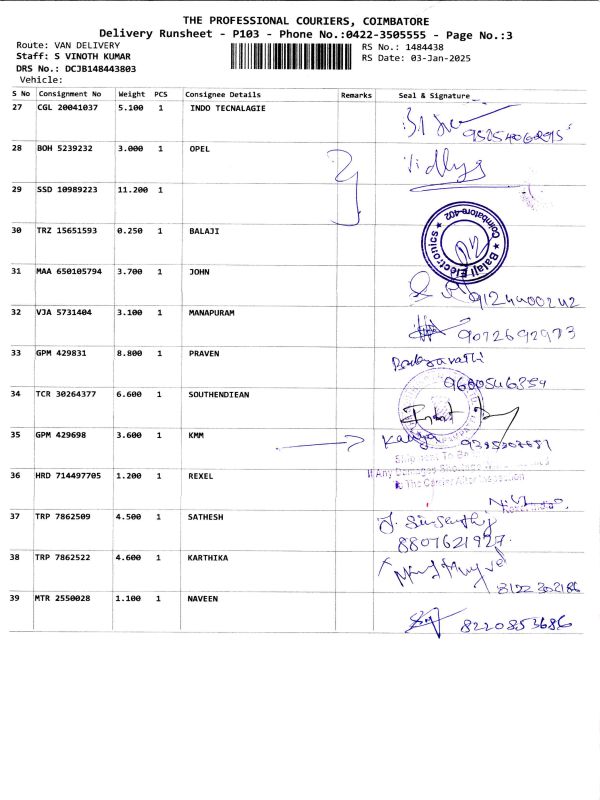 THE PROFESSIONAL COURIERS, COIMBATORE
Delivery Runsheet - P103 - Phone No.:0422-3505555 - Page No.:3
Route: VAN DELIVERY RS No.: 1484438
Staff: S VINOTH KUMAR RS Date: 03-Jan-2025
DRS No.: DCJB148443803
Vehicle:
S No Consignment No Weight PCS Consignee Details Remarks Seal & Signature
27 CGL 20041037 5.100 1 INDO TECNALAGIE
28 BOH 5239232 3.000 1 OPEL
Vidhya
29 SSD 10989223 11.200 1
30 TRZ 15651593 0.250 1 BALAJI
★ Balaji Electronics ★ Coimbatore-402
31 MAA 650105794 3.700 1 JOHN
9124400242
32 VJA 5731404 3.100 1 MANAPURAM
9072692973
33 GPM 429831 8.800 1 PRAVEN
9600546354
34 TCR 30264377 6.600 1 SOUTHENDIEAN
35 GPM 429698 3.600 1 KMM
Kanya
36 HRD 714497705 1.200 1 REXEL
If Any Damages
to The Carrier After Inspection
37 TRP 7862509 4.500 1 SATHESH
8807621927
38 TRP 7862522 4.600 1 KARTHIKA
8122302186
39 MTR 2550028 1.100 1 NAVEEN
8220853686